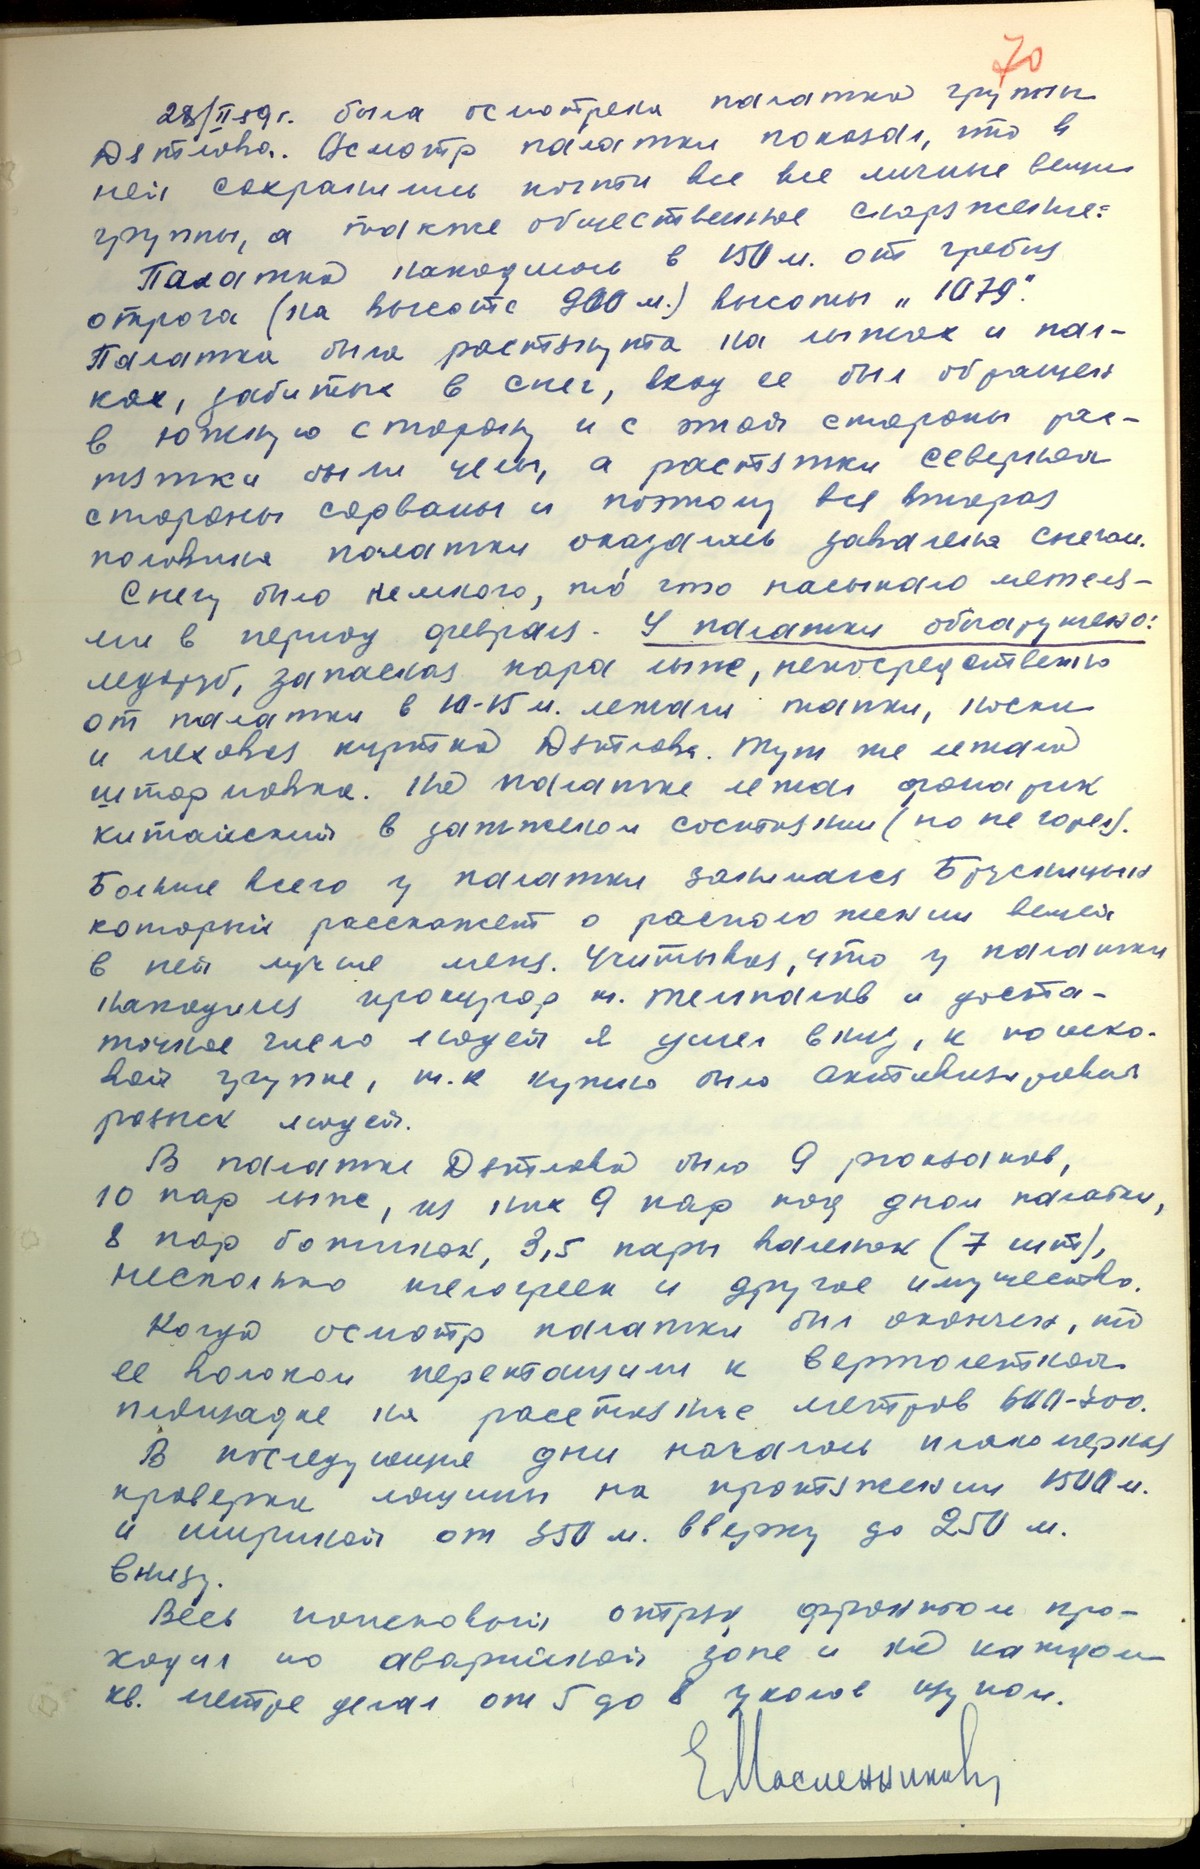 70
28/II 59 г. была осмотрена палатка группы
Дятлова. Осмотр палатки показал, что в
ней сохранились почти все все личные вещи
группы, а также общественное снаряжение.
Палатка находилась в 150 м. от гребня
отрога (на высоте 900 м.) высоты „1079".
Палатка была растянута на лыжах и пал-
ках, забитых в снег, вход ее был обращен
в южную сторону и с этой стороны рас-
тяжки были целы, а растяжки северной
стороны сорваны и поэтому вся вторая
половина палатки оказалась завалена снегом.
Снегу было немного, то что насыпало метеля-
ми в период февраля. У палатки обнаружено:
ледоруб, запасная пара лыж, непосредственно
от палатки в 10-15 м. лежали тапки, носки
и меховая куртка Дятлова. Тут же лежала
штормовка. На палатке лежал фонарик
китайский в зажженом состоянии (но не горел).
Больше всего у палатки занимался Брусницын
который расскажет о расположении вещей
в ней лучше меня. Учитывая, что у палатки
находился прокурор т. Темпалов и доста-
точное число людей я ушел вниз, к поиско-
вой группе, т.к нужно было активизировать
розыск людей.
В палатке Дятлова было 9 рюкзаков,
10 пар лыж, из них 9 пар под дном палатки,
8 пар ботинок, 3,5 пары валенок (7 шт),
несколько телогреек и другое имущество.
Когда осмотр палатки был окончен, то
ее волоком перетащили к вертолетной
площадке на расстояние метров 600-700.
В последующие дни началась планомерная
проверка лощины на протяжении 1500 м.
и шириной от 350 м. вверху до 250 м.
внизу.
Весь поисковый отряд фронтом про-
ходил по аварийной зоне и на каждом
кв. метре делал от 5 до 8 уколов щупом.
Е Масленников